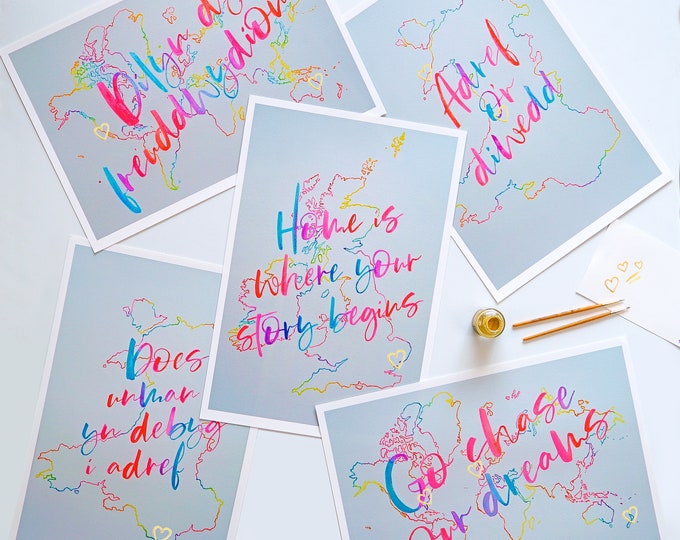 Dilyn dy
freuddwydion
Adref
o'r
diwedd
Home is
where your
story begins
Does
unman
yn debyg
i adref
Go chase
our dreams